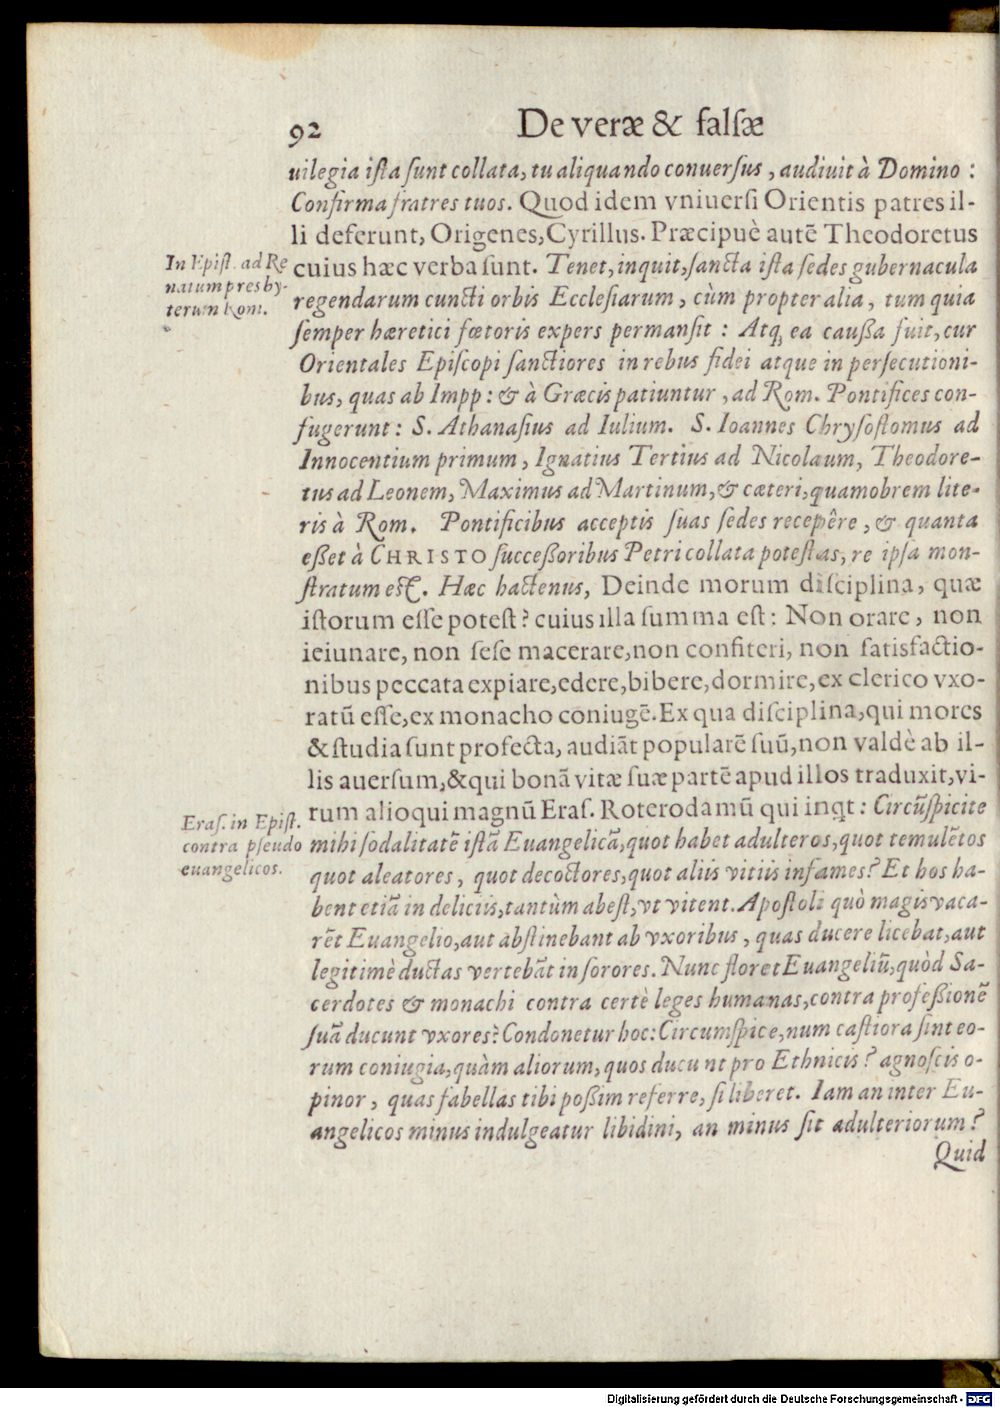 92 De veræ & falsæ
uilegia ista sunt collata, tu aliquando conuersus, audiuit à Domino :
Confirma fratres tuos. Quod idem vniuersi Orientis patres il-
li deferunt, Origenes, Cyrillus. Præcipuè autẽ Theodoretus
In Epist. ad Re
natum presby-
terum Rom.
cuius hæc verba sunt. Tenet, inquit, sancta ista sedes gubernacula
regendarum cuncti orbis Ecclesiarum, cùm propter alia, tum quia
semper hæretici fœtoris expers permansit : Atq; ea caußa fuit, cur
Orientales Episcopi sanctiores in rebus fidei atque in persecutioni-
bus, quas ab Impp: & à Græcis patiuntur, ad Rom. Pontifices con-
fugerunt: S. Athanasius ad Iulium. S. Ioannes Chrysostomus ad
Innocentium primum, Ignatius Tertius ad Nicolaum, Theodore-
tus ad Leonem, Maximus ad Martinum, & cæteri, quamobrem lite-
ris à Rom. Pontificibus acceptis suas sedes recepêre, & quanta
eßet à CHRISTO succeßoribus Petri collata potestas, re ipsa mon-
stratum est. Hæc hactenus, Deinde morum disciplina, quæ
istorum esse potest? cuius illa summa est: Non orare, non
ieiunare, non sese macerare, non confiteri, non satisfactio-
nibus peccata expiare, edere, bibere, dormire, ex clerico vxo-
ratũ esse, ex monacho coniugẽ. Ex qua disciplina, qui mores
& studia sunt profecta, audiãt popularẽ suũ, non valdè ab il-
lis auersum, & qui bonã vitæ suæ partẽ apud illos traduxit, vi-
rum alioqui magnũ Eras. Roterodamũ qui inqt : Circũspicite
Eras. in Epist.
contra pseudo
euangelicos.
mihi sodalitatẽ istã Euangelicã, quot habet adulteros, quot temulẽtos
quot aleatores, quot decoctores, quot aliis vitiis infames? Et hos ha-
bent etiã in deliciis, tantùm abest, vt vitent. Apostoli quò magis vaca-
rẽt Euangelio, aut abstinebant ab vxoribus, quas ducere licebat, aut
legitimè ductas vertebãt in sorores. Nunc floret Euangeliũ, quòd Sa-
cerdotes & monachi contra certè leges humanas, contra profeßionẽ
suã ducunt vxores? Condonetur hoc: Circumspice, num castiora sint eo-
rum coniugia, quàm aliorum, quos ducunt pro Ethnicis? agnoscis o-
pinor, quas fabellas tibi poßim referre, si liberet. Iam an inter Eu-
angelicos minus indulgeatur libidini, an minus sit adulteriorum?
Quid
Digitalisierung gefördert durch die Deutsche Forschungsgemeinschaft - DFG